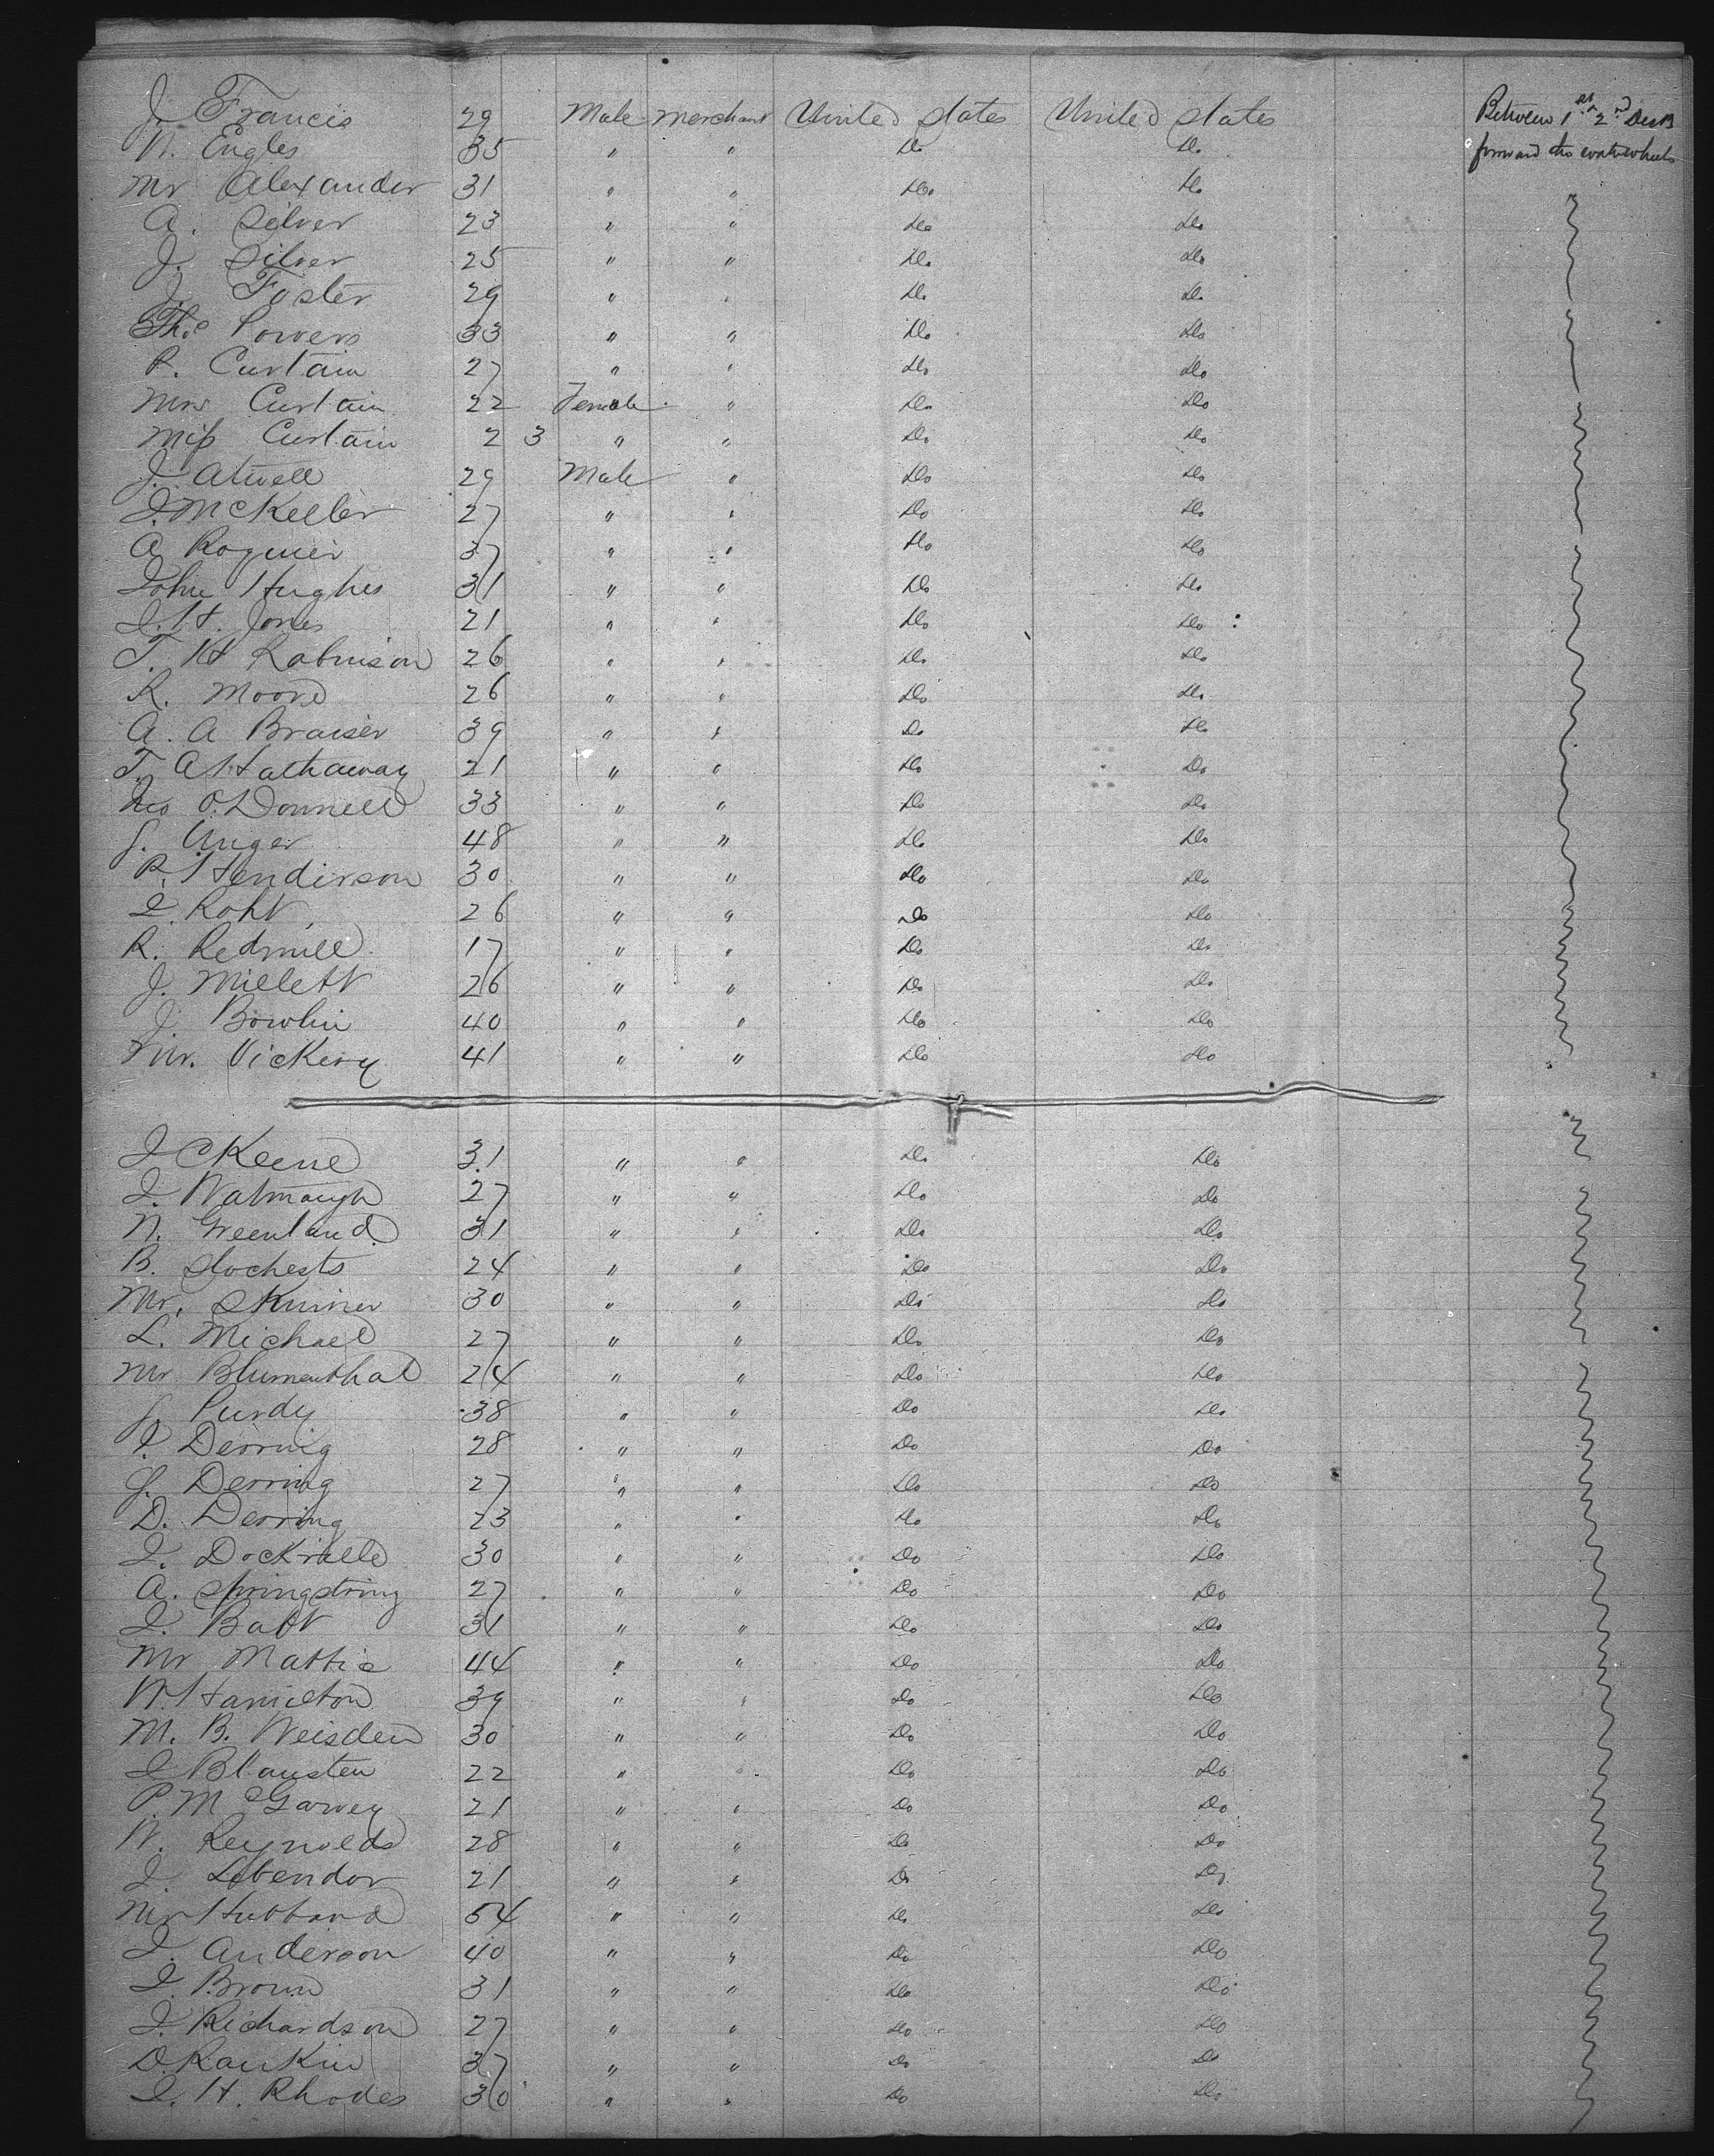 J. Francis 29 Male Merchant United States United States Between 1st & 2nd Deck
N. Engles 35 " " Do Do forward the waterwheels
Mr Alexander 31 " " Do Do
A. Silver 23 " " Do Do
J. Silver 25 " " Do Do
J. Foster 29 " " Do Do
Tho Powers 33 " " Do Do
P. Curtain 27 " " Do Do
Mrs Curtain 22 Female " Do Do
Miss Curtain 2 3 " " Do Do
J. Atwell 29 Male " Do Do
J. McKeeler 27 " " Do Do
A Roguier 37 " " Do Do
John Hughes 31 " " Do Do
J. H. Jones 21 " " Do Do
T. H Robinson 26 " " Do Do
R. Moore 26 " " Do Do
A. A Braiser 39 " " Do Do
T. A Hathaway 21 " " Do Do
Jno O.Donnell 33 " " Do Do
J. Unger 48 " " Do Do
R. Henderson 30 " " Do Do
J. Roht 26 " " Do Do
R. Redmill 17 " " Do Do
J. Millett 26 " " Do Do
J. Bowlin 40 " " Do Do
Mr. Vickery 41 " " Do Do
J C Keene 31 " " Do Do
J. Watmaugh 27 " " Do Do
N. Greenland 31 " " Do Do
B. 24 " " Do Do
Mr. Skinner 30 " " Do Do
L. Michael 27 " " Do Do
Mr Blumenthal 24 " " Do Do
J. Purdy 38 " " Do Do
J. Derring 28 " " Do Do
J. Derring 27 " " Do Do
D. Derring 23 " " Do Do
J. Dockrille 30 " " Do Do
A. Springstring 27 " " Do Do
J. Batt 31 " " Do Do
Mr Mattie 44 " " Do Do
W. Hamilton 39 " " Do Do
M. B. Weisden 30 " " Do Do
J Blausten 22 " " Do Do
P. McGarvey 21 " " Do Do
W. Reynolds 28 " " Do Do
J. Lobendor 21 " " Do Do
Mr Hubbard 54 " " Do Do
J. Anderson 40 " " Do Do
J. Brown 31 " " Do Do
J. Richardson 27 " " Do Do
D. Rankin 37 " " Do Do
J. H. Rhodes 30 " " Do Do